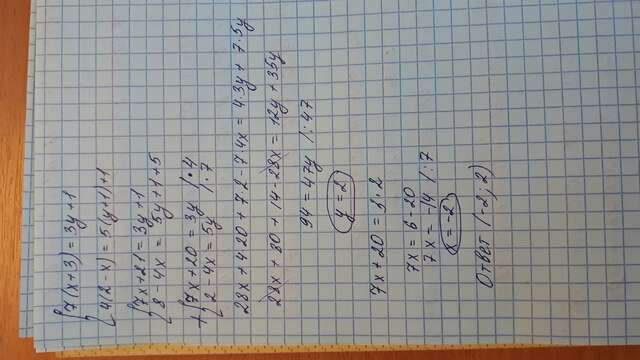 {7(x+3)=3y+1
{4(2-x)=5(y+1)+1
{7x+21=3y+1
{8-4x=5y+1+5
+{7x+20=3y /·4
{2-4x=5y /·7
28x+4·20+7·2-7·4x=4·3y+7·5y
28x+80+14-28x=12y+35y
94=47y /:47
y=2
7x+20=3·2
7x=6-20
7x=-14 /:7
x=-2
Ответ (-2;2)